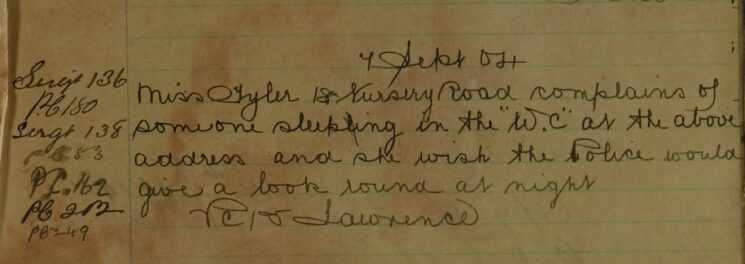 7 Sept 04
Sergt 136
Miss Tyler 18 Nursery Road complains of
PC 180
someone sleeping in the "W.C" at the above
Sergt 138
address and she wish the Police would
83
PC. 162
give a look round at night
PC 212
PC Lawrence
PC 249